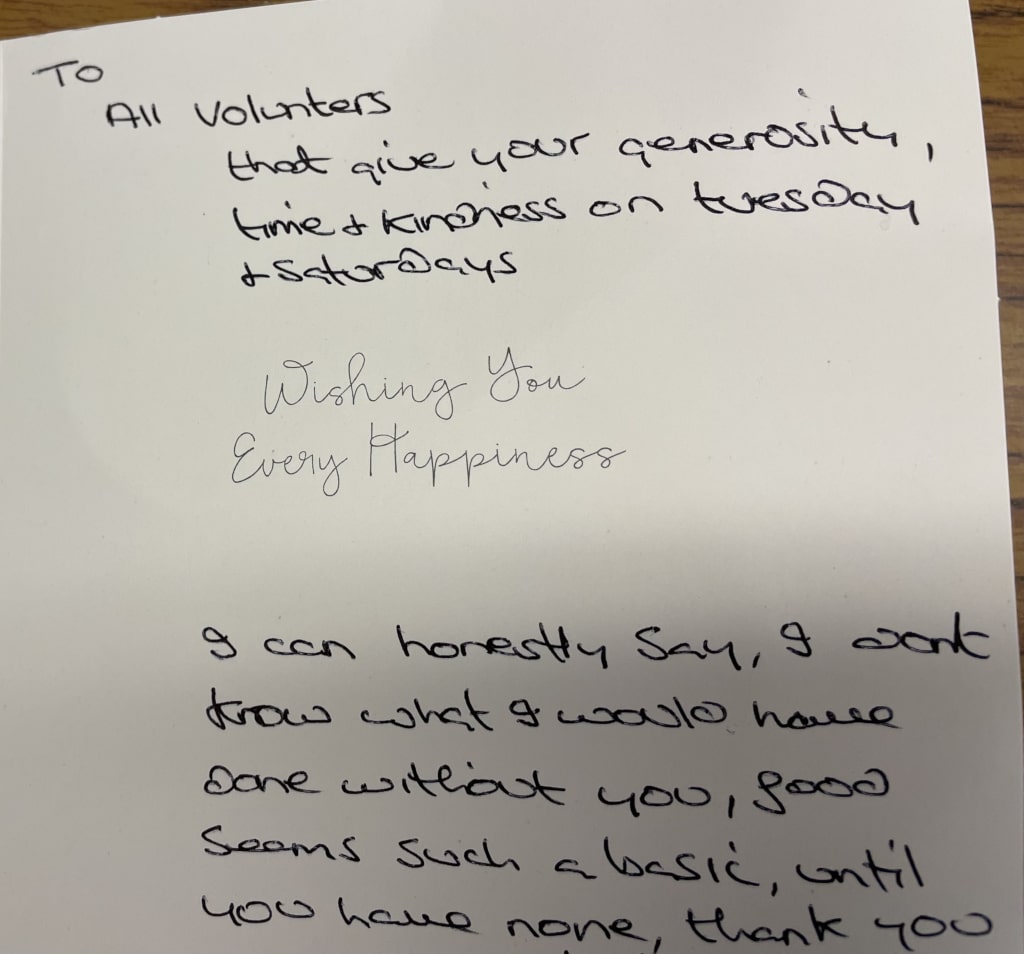 To
All Volunters
that give your generosity,
time & kindness on tuesday
& Saturdays
Wishing You
Every Happiness
I can honestly say, I dont
know what I would have
done without you, food
seems such a basic, until
you have none, thank you